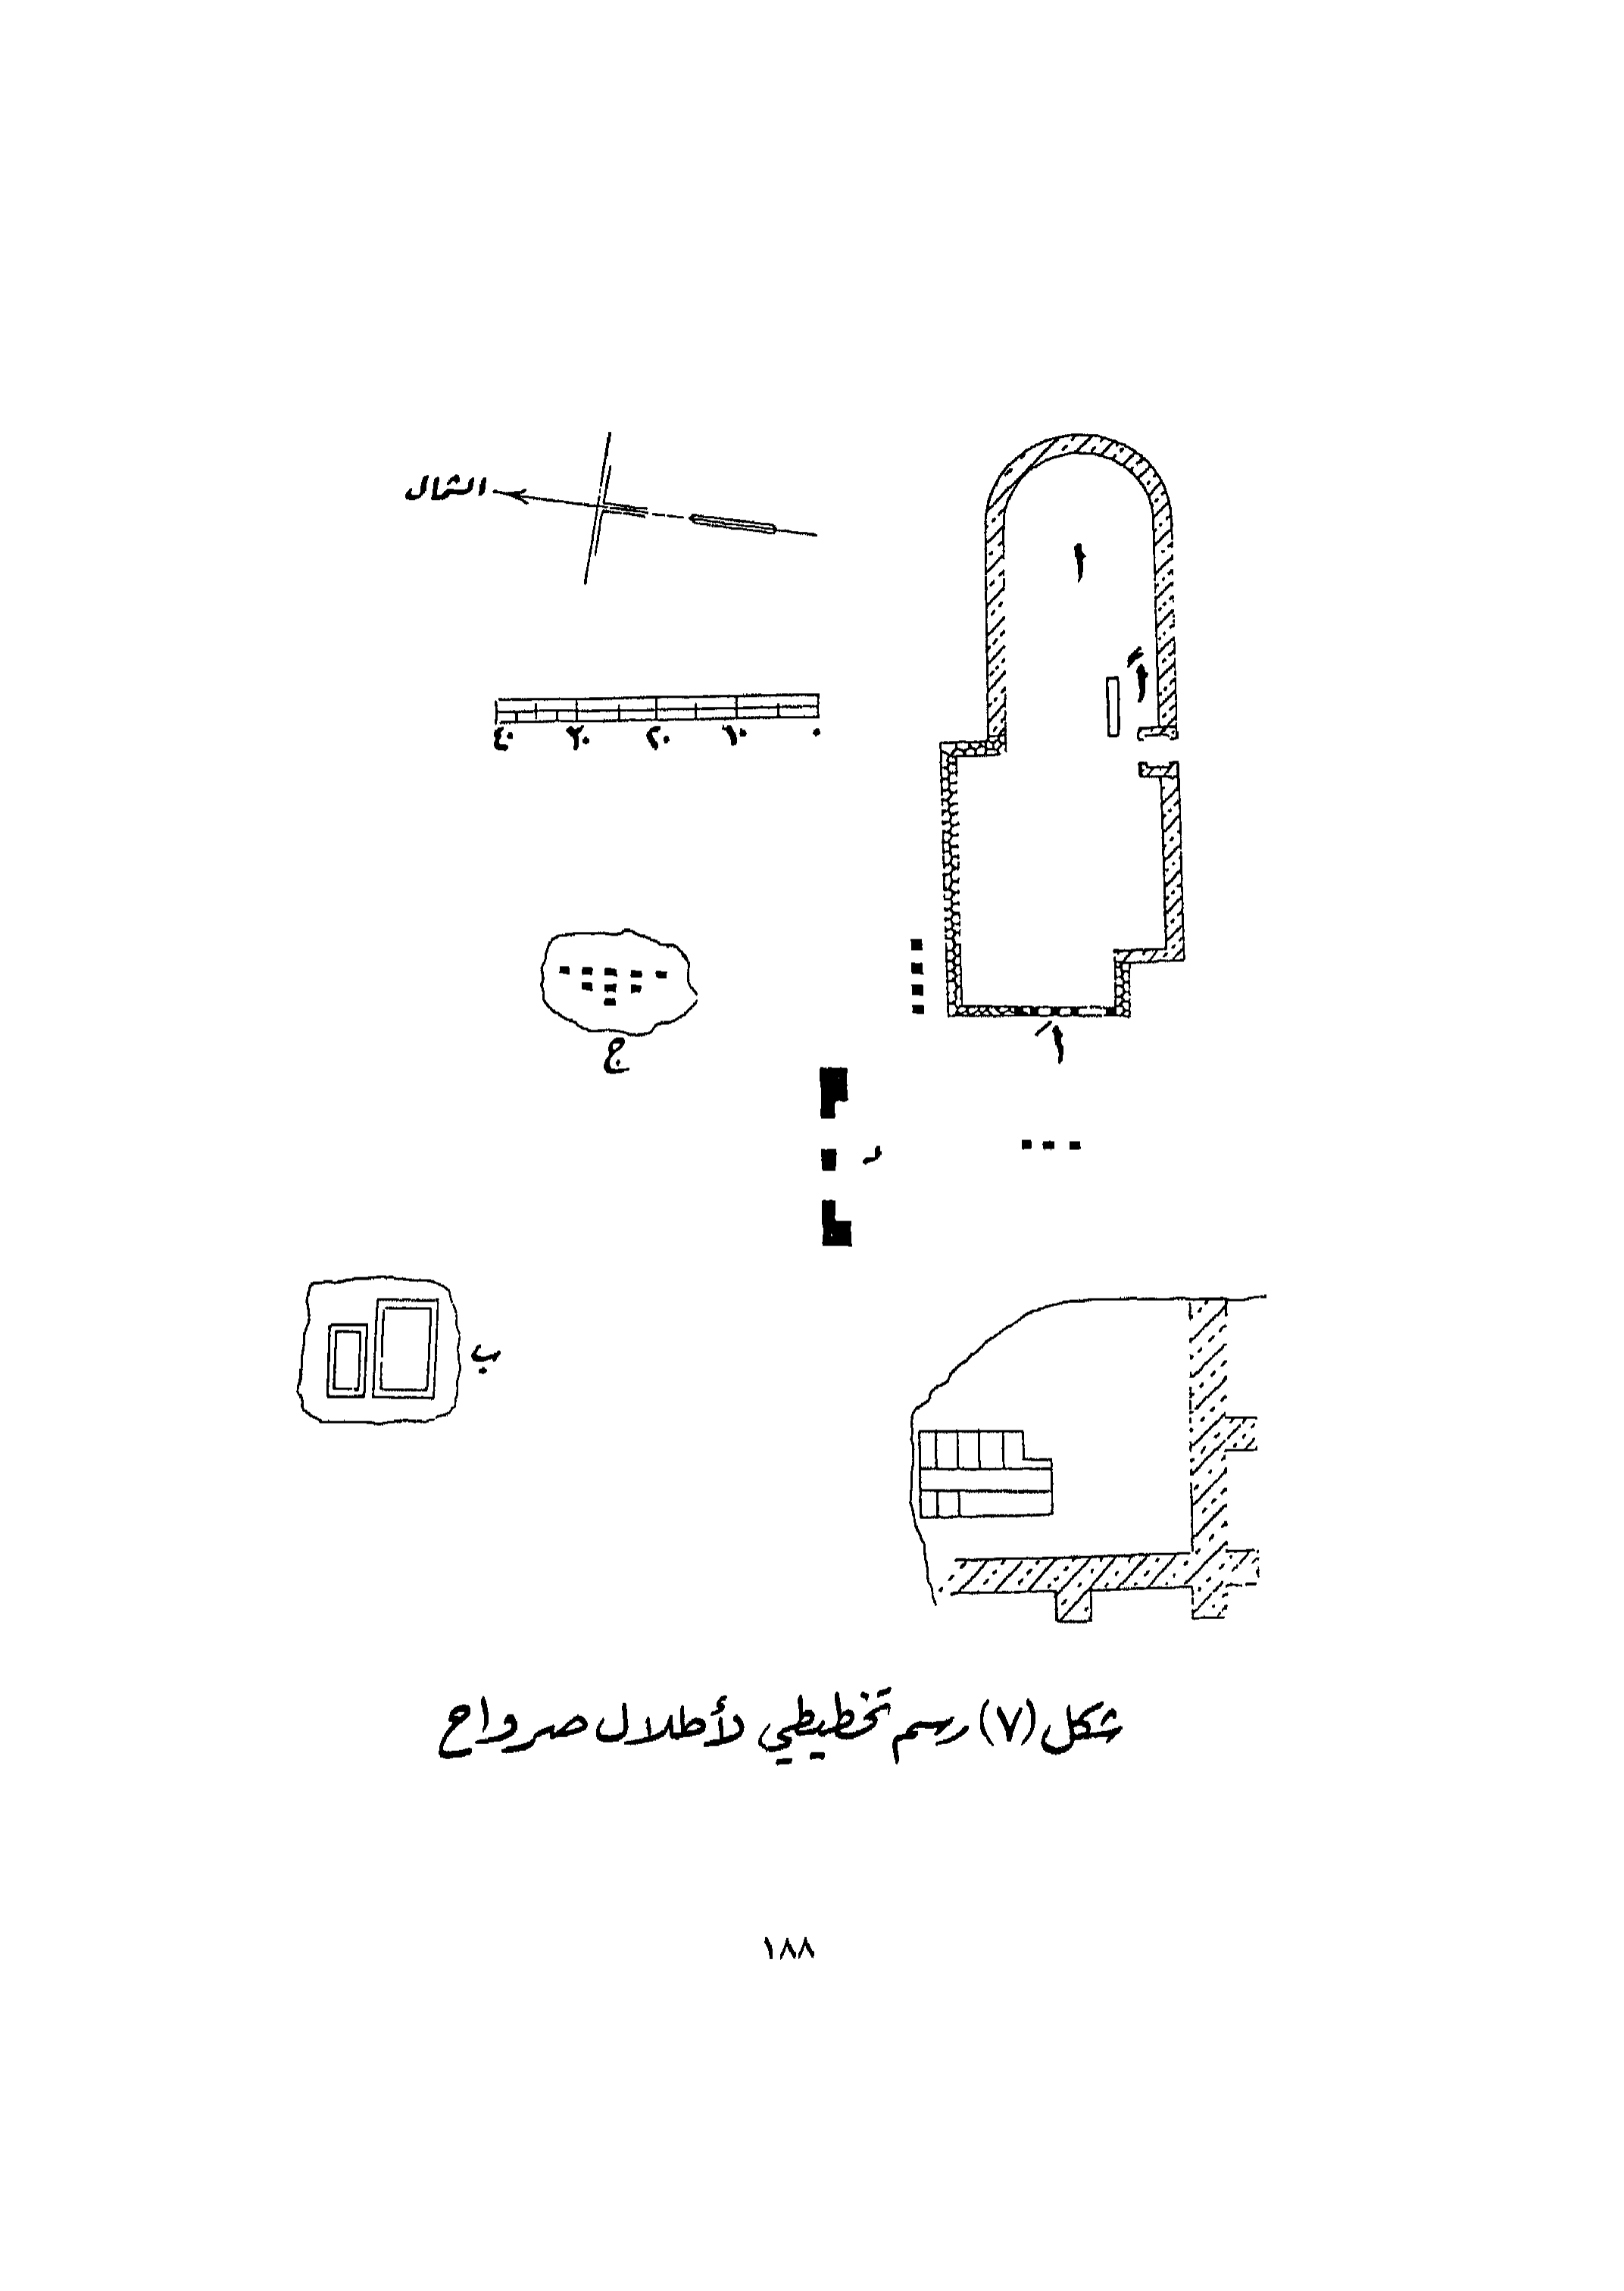 الشمال
ا
اً
٤٠ ٣٠ ٢٠ ١٠ ٠
ج
اَ
د
ب
شكل (٧) رسم تخطيطي لأطلال صرواح
١٨٨